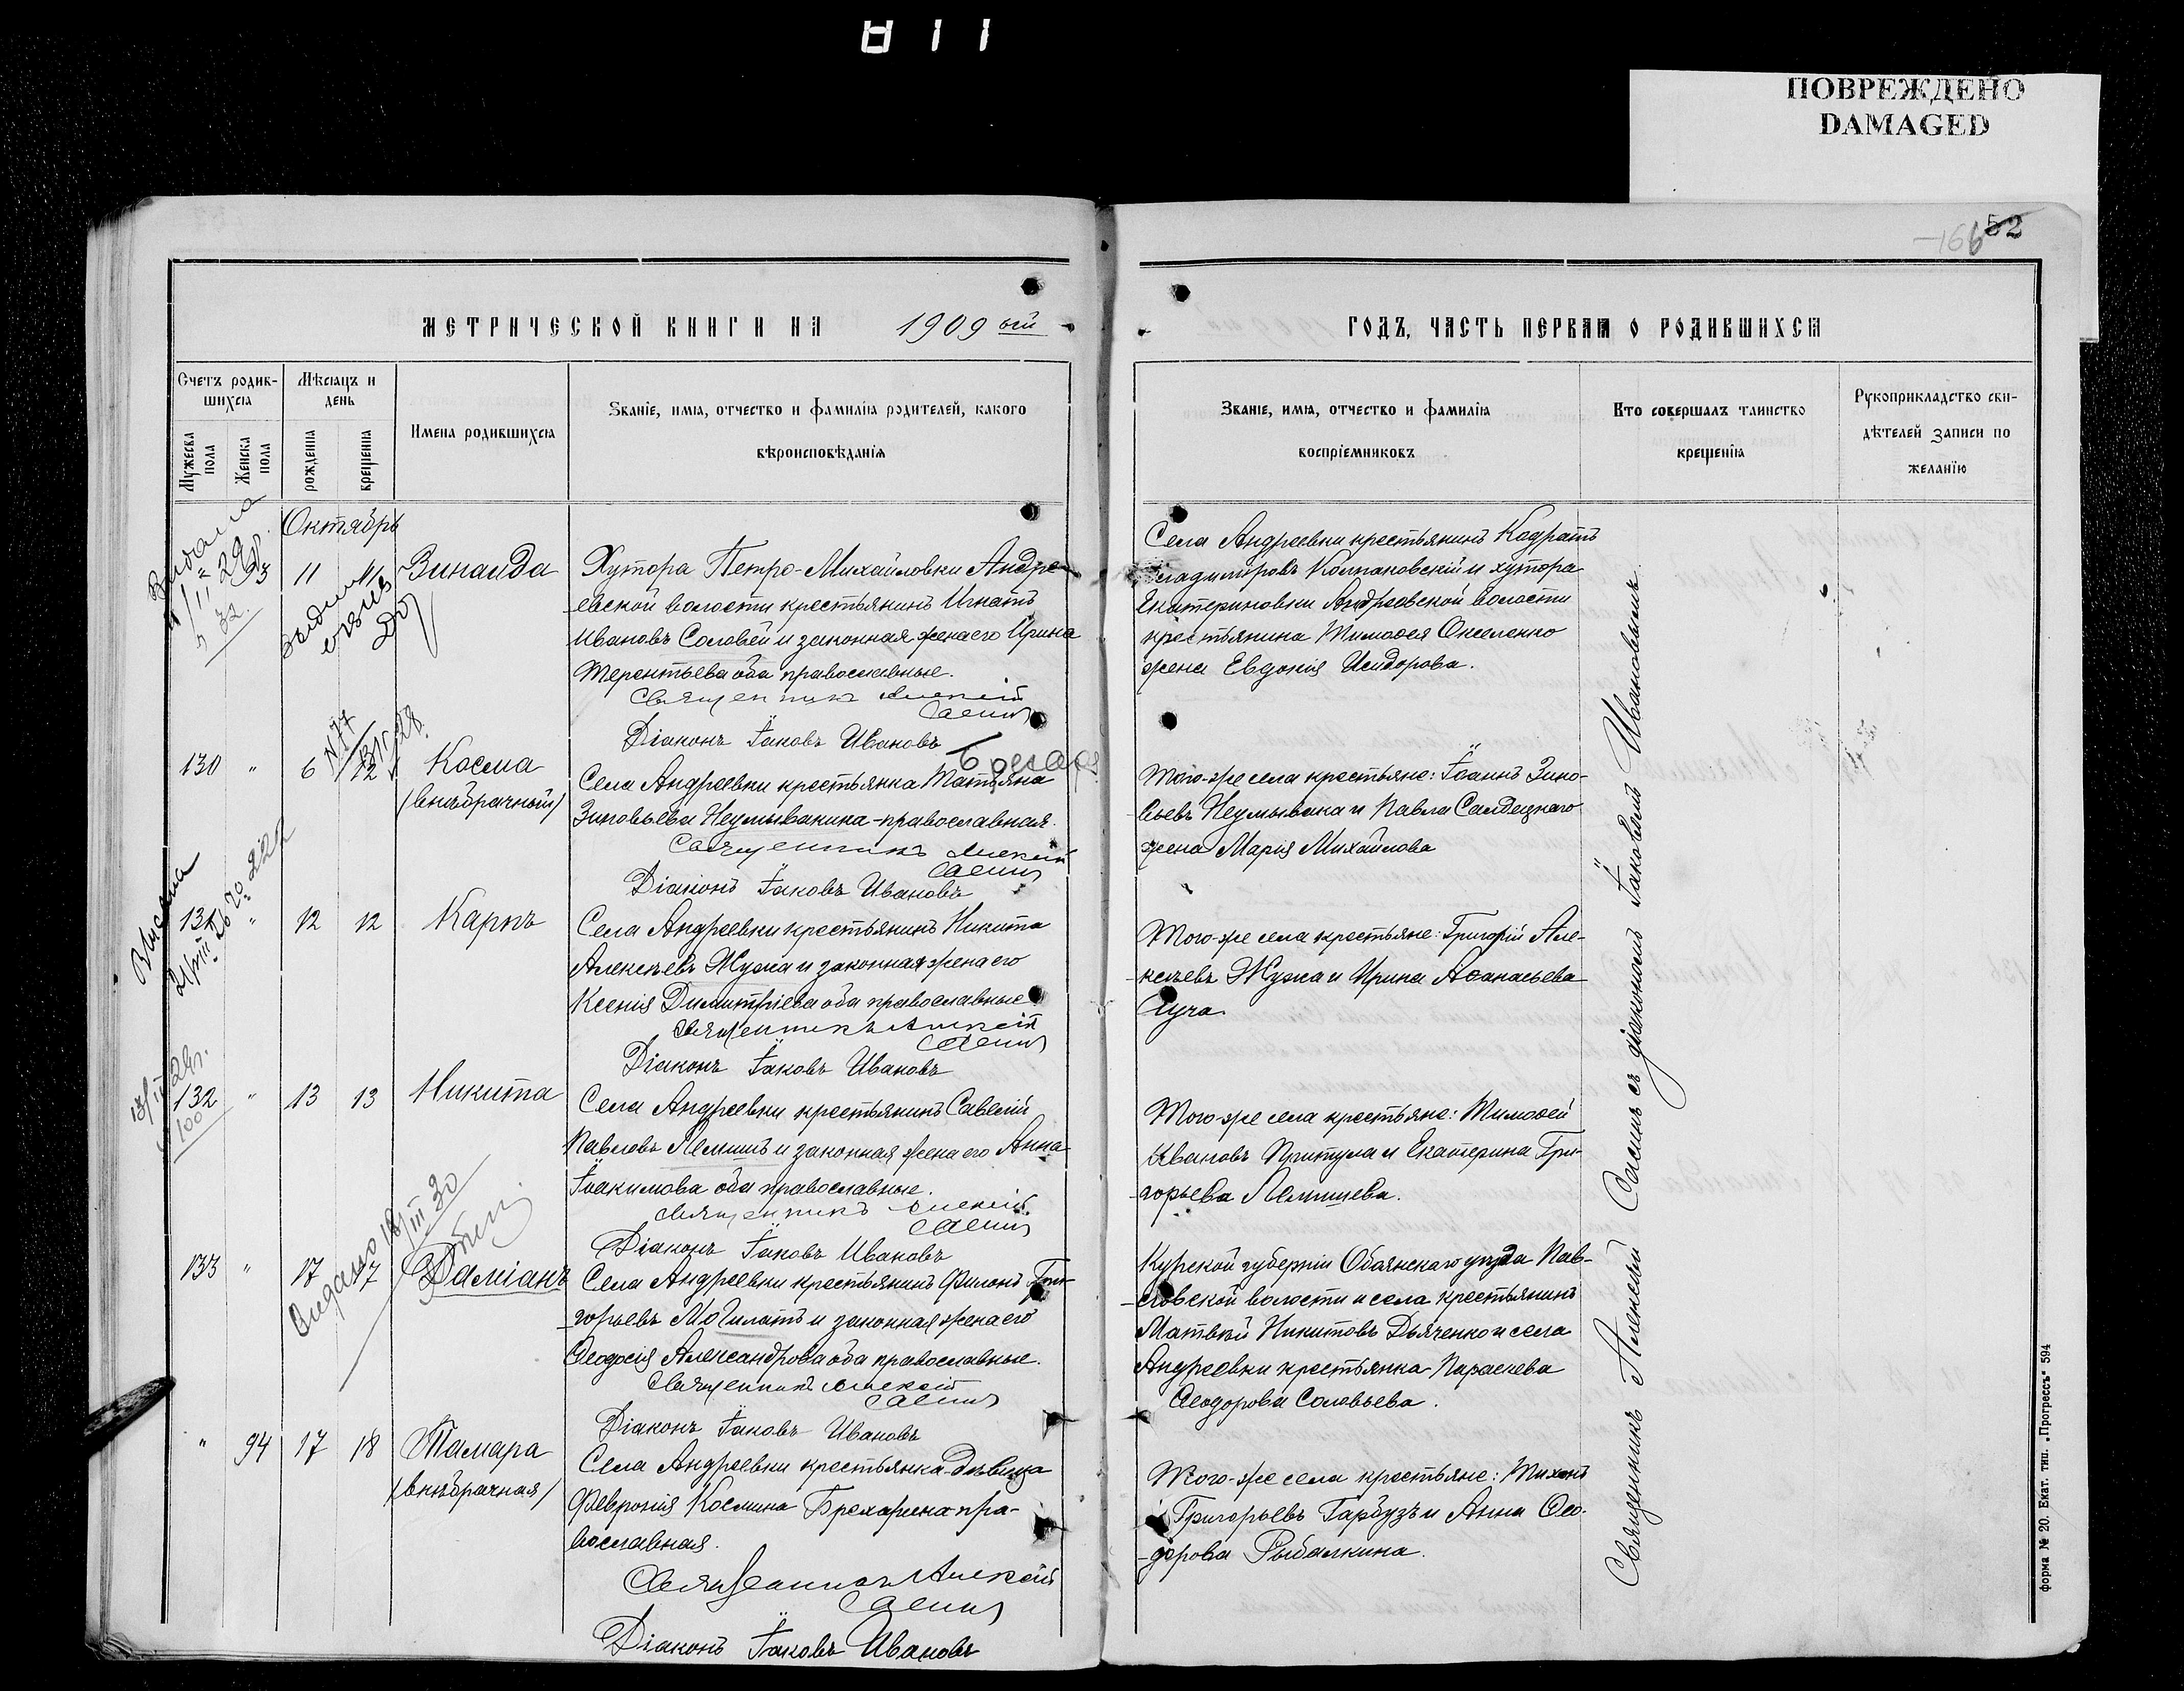 811
ПОВРЕЖДЕНО
DAMAGED
52
МЕТРИЧЕСКОЙ КНИГИ НА 1909 ый
ГОДЪ, ЧАСТЬ ПЕРВАЯ О РОДИВШИХСЯ
Счетъ родив-
шихся
Мужеска пола
Женска пола
Мѣсяцъ и
день
рожденія
крещенія
Имена родившихся
Званіе, имя, отчество и фамилія родителей, какого
вѣроисповѣданія
Званіе, имя, отчество и фамилія
воспріемниковъ
Кто совершалъ таинство
крещенія
Рукоприкладство сви-
дѣтелей записи по
желанію
Октябрь
93 11 11 Зинаида
Хутора Петро-Михайловки Андре-
евской волости крестьянинъ Игнатъ
Ивановъ Соловей и законная жена его Ирина
Терентьева оба православные.
Священникъ Алексій
Сасинъ
Діаконъ Іаковъ Ивановъ
Села Андреевки крестьянинъ Кодратъ
Владимировъ Колпаковскій и хутора
Екатериновки Андреевской волости
крестьянина Тимоѳея
жена Евдокія Исидорова.
130 " 6 12 Косма
(внѣбрачный)
Села Андреевки крестьянка Татьяна
Зиновьева Неумывакина-православная.
Священникъ Алексій
Сасинъ
Діаконъ Іаковъ Ивановъ
Того-же села крестьяне: Іоаннъ Зино-
вьевъ Неумывака и Павла
жена Марія Михайлова
131 " 12 12 Карпъ
Села Андреевки крестьянинъ Никита
Алексѣевъ Жужа и законная жена его
Ксенія Димитріева оба православные.
Священникъ Алексій
Сасинъ
Діаконъ Іаковъ Ивановъ
Того-же села крестьяне: Григорій Але-
ксѣевъ Жужа и Ирина Аѳанасьева
132 " 13 13 Никита
Села Андреевки крестьянинъ Савелій
Павловъ Лемишъ и законная жена его Анна
Іоакимова оба православные.
Священникъ Алексій
Сасинъ
Діаконъ Іаковъ Ивановъ
Того-же села крестьяне: Тимоѳей
Ивановъ Притула и Екатерина Гри-
горьева Лемишева.
133 " 17 17 Даміанъ
Села Андреевки крестьянинъ Филонъ Гри-
горьевъ Могилатъ и законная жена его
Ѳеодосія Александрова оба православные.
Священникъ Алексій
Сасинъ
Діаконъ Іаковъ Ивановъ
Курской губерніи Обоянскаго уѣзда Пав-
ловской волости и села крестьянинъ
Матвѣй Никитовъ Дьяченко и села
Андреевки крестьянка Параскева
Ѳеодорова Соловьева.
" 94 17 18 Тамара
(внѣбрачная)
Села Андреевки крестьянка-дѣвица
Февронія Космина Брехарина пра-
вославная.
Священникъ Алексій
Сасинъ
Діаконъ Іаковъ Ивановъ
Того-же села крестьяне: Тихонъ
Григорьевъ Гарбузъ и Анна Ѳео-
дорова Рыбалкина.
Священникъ Алексѣй Сасинъ съ діакономъ Іаковомъ Ивановымъ.
Форма № 20. Екат. тип. „Прогрессъ" 594